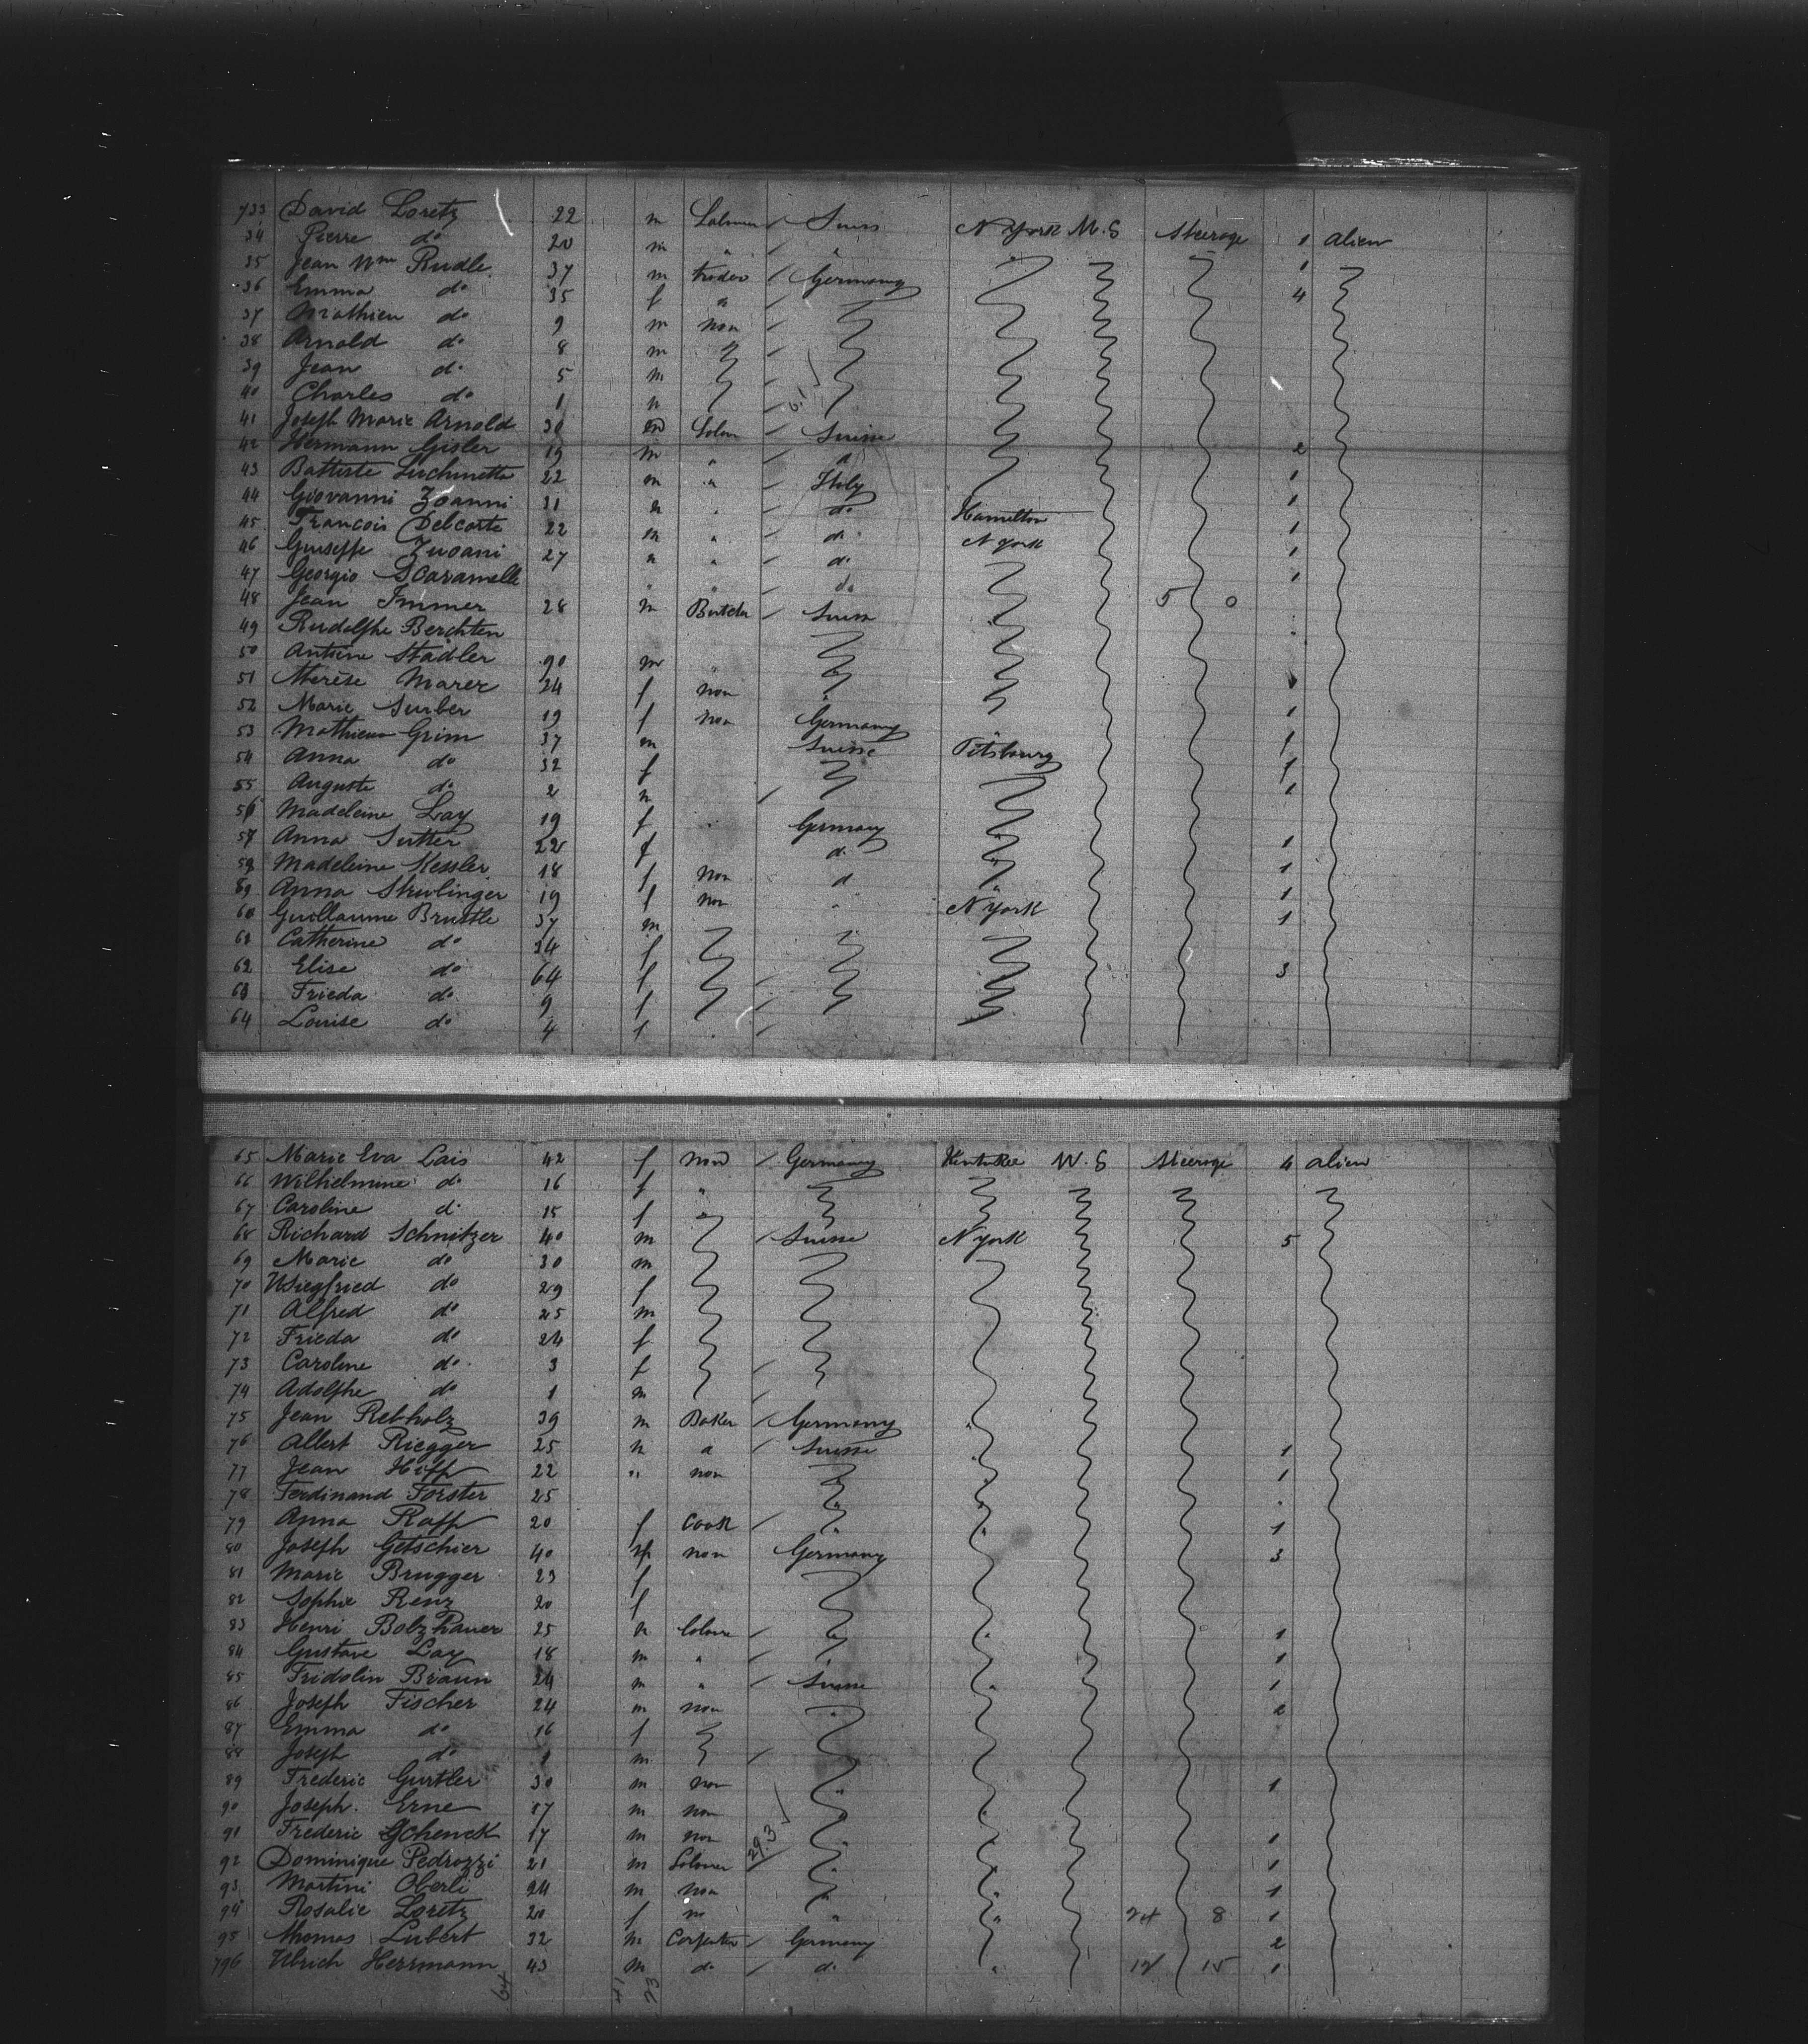 733 David Loretz 22 m Labourer Suiss N York M.S Steerage 1 alien
34 Pierre do 20 m " " 1
35 Jean Wm Rudle 37 m trader Germany 4
36 Emma do 35 f "
37 Mathieu do 9 m non
38 Arnold do 8 m
39 Jean do 5 m
40 Charles do 1 m
41 Joseph Marie Arnold 30 m Labou Suisse 2
42 Hermann Gisler 19 m " "
43 Battiste Luchinetta 22 m " Italy 1
44 Giovanni Zoanni 31 m " do Hamilton 1
45 Francois Delcoste 22 m " do N York 1
46 Guiseffe Zuoani 27 m " do 1
47 Georgio Scaramelle " " do 1
48 Jean Immer 28 m Butcher Suisse 5 0
49 Rudolphe Berchten
50 Antoine Stadler 90 m "
51 Therèse Marer 24 f non " 1
52 Marie Surber 19 f non Germany 1
53 Mathieu Grim 37 m Suisse Pitsbourg 1
54 Anna do 32 f 1
55 Auguste do 2 m 1
56 Madeleine Lay 19 f Germany
57 Anna Sutter 22 f do 1
58 Madeleine Kessler 18 f non d 1
59 Anna Strublinger 19 f non " N York 1
60 Guillaume Brustle 37 m 1
61 Catherine do 34 f
62 Elise do 64 f 3
63 Frieda do 9 f
64 Louise do 4 f
65 Marie Eva Lais 42 f non Germany Kentukee W.S Steerage 4 alien
66 Wilhelmine do 16 f "
67 Caroline do 15 f "
68 Richard Schnitzer 40 m Suisse N York 5
69 Marie do 30 m
70 Wsiegfried do 29 f
71 Alfred do 25 m
72 Frieda do 24 f
73 Caroline do 3 f
74 Adolphe do 1 m
75 Jean Rebholz 39 m Baker Germany "
76 Albert Riegger 25 m a Suisse 1
77 Jean Hipp 22 " non 1
78 Ferdinand Forster 25
79 Anna Rapp 20 f Cook " 1
80 Joseph Getschier 40 m non Germany 3
81 Marie Brugger 23 f
82 Sophie Renz 20 f
83 Henri Bolzhauer 25 m Laboure " 1
84 Gustave Lay 18 m " " 1
85 Fridolin Braun 24 m " Suisse 1
86 Joseph Fischer 24 m non " 2
87 Emma do 16 f
88 Joseph do 1 m
89 Frederic Gurtler 30 m non " 1
90 Joseph Erne 17 m non "
91 Frederic Schenck 17 m non " 1
92 Dominique Pedrozzi 21 m Labourer " 1
93 Martini Oberli 24 m non " 1
94 Rosalie Loretz 20 f " 24 8 1
95 Thomas Lubert 32 m Carpenter Germany 2
796 Ulrich Herrmann 43 m do do " 12 15 1